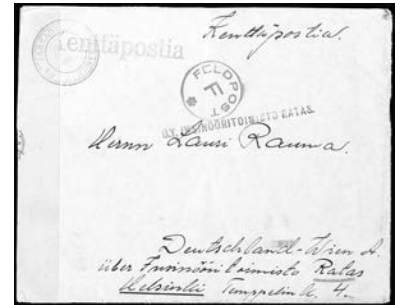 Kenttäpostia
Kenttäpostia.
FELDPOST
F
O.Y. INSINÖÖRITOIMISTO RATAS.
Herrn Lauri Rauma.
Deutschland-Wien A.
über Insinööritoimisto Ratas
Helsinki Temppelik. 4.